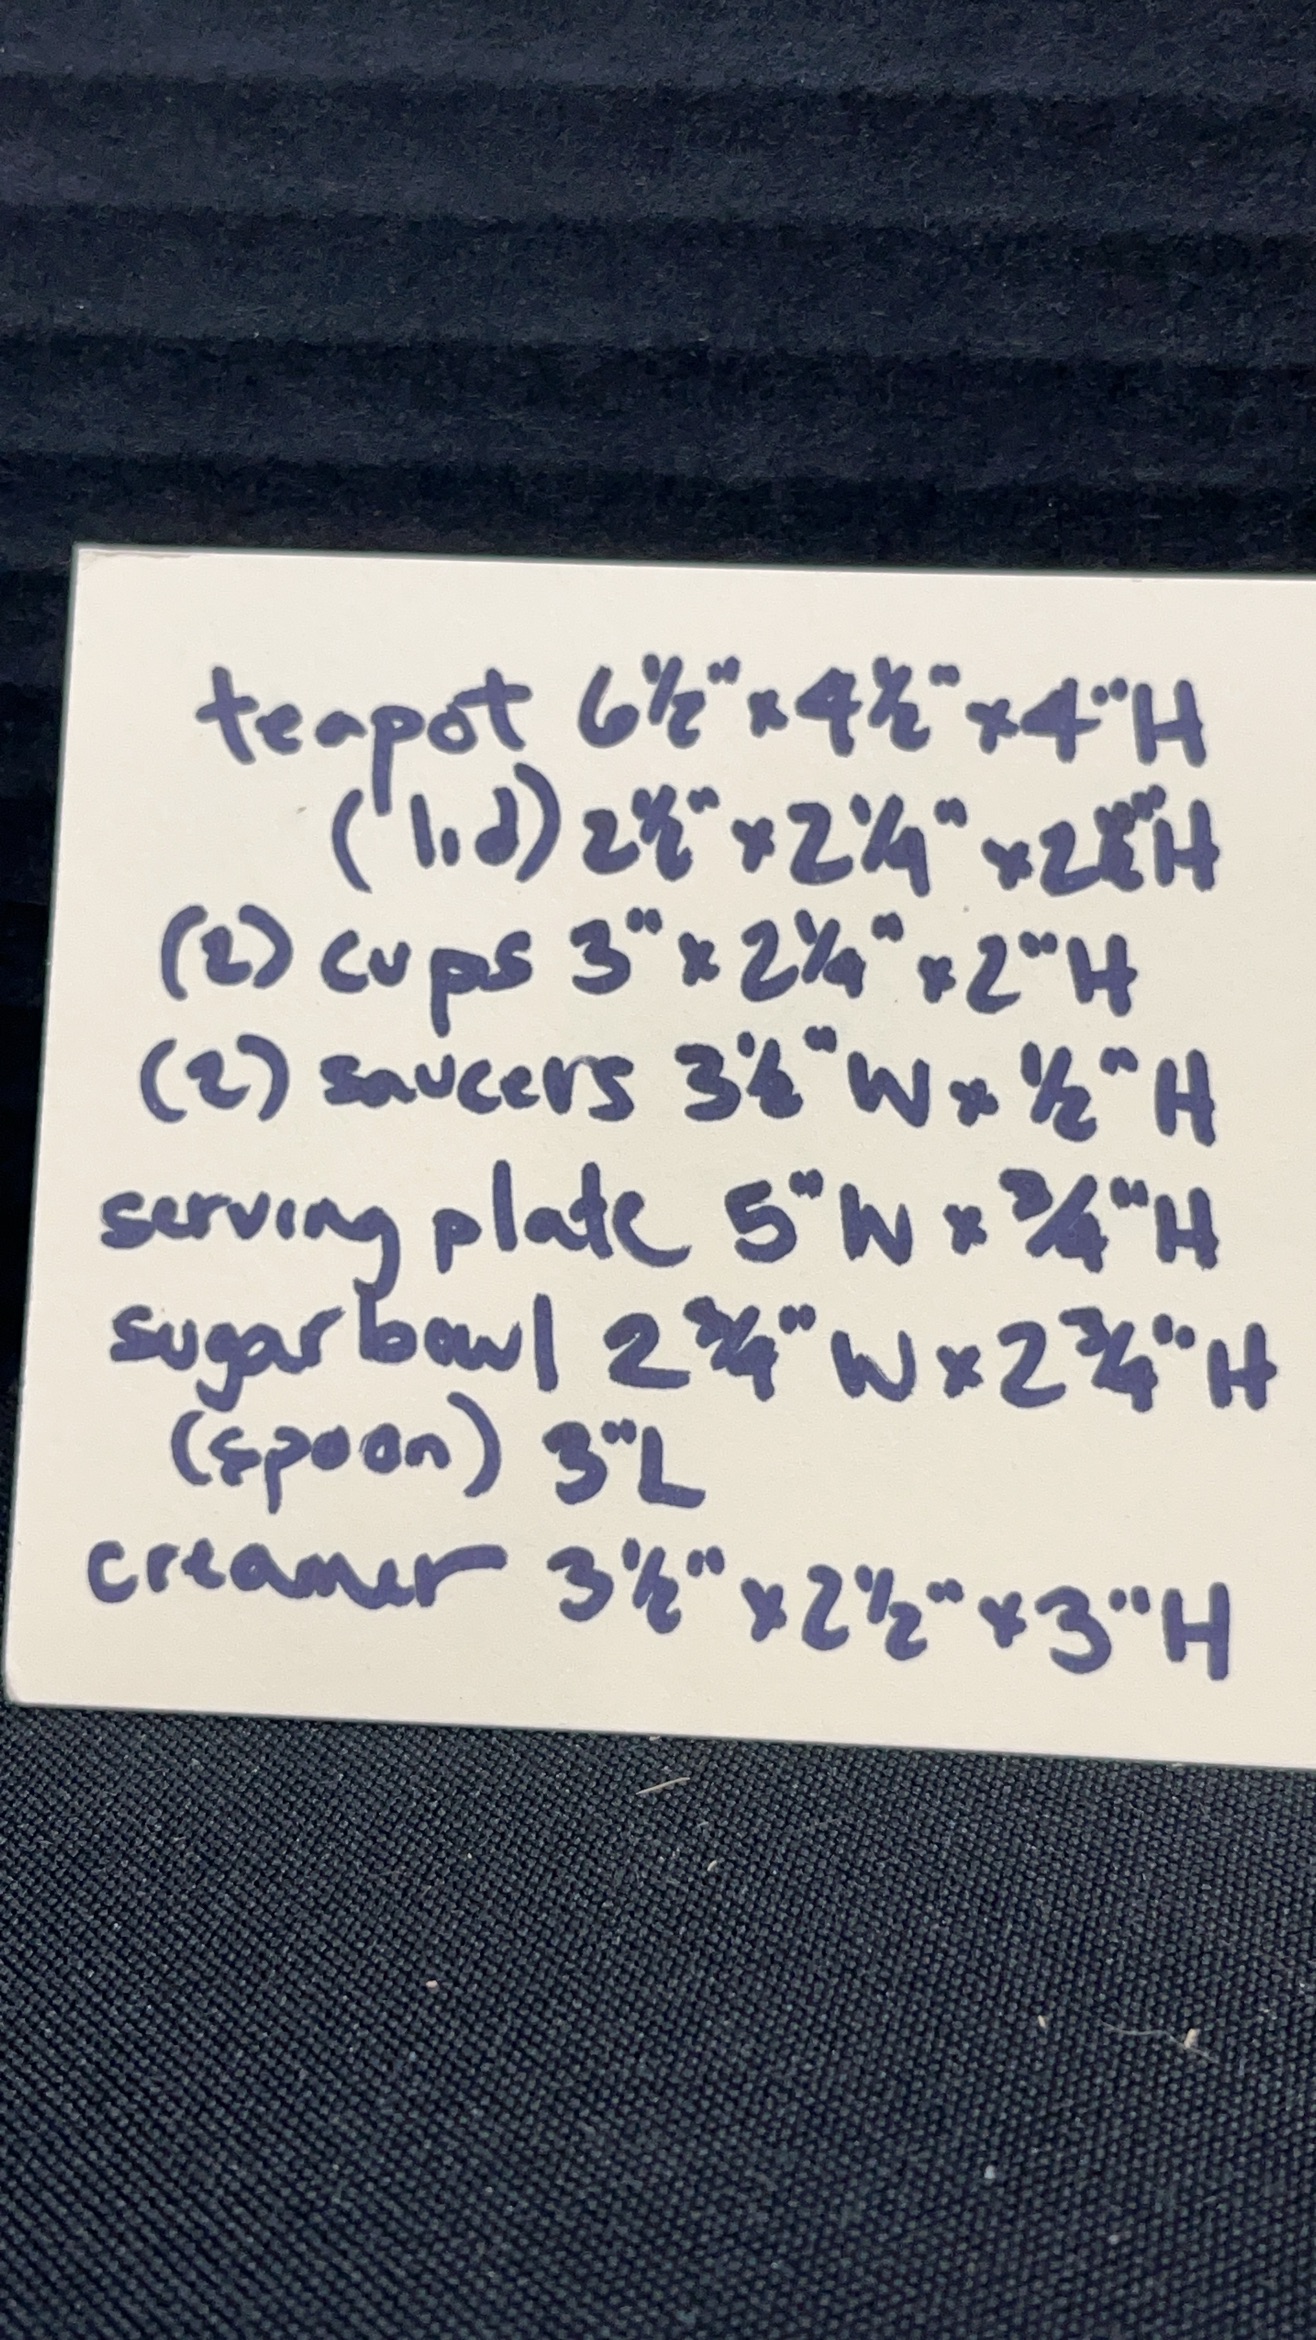 teapot 6½" x 4½" x 4" H
(lid) 2½" x 2¼" x 2½" H
(2) cups 3" x 2¼" x 2" H
(2) saucers 3½" W x ½" H
serving plate 5" W x ¾" H
sugar bowl 2¾" W x 2¾" H
(spoon) 3" L
creamer 3½" x 2½" x 3" H